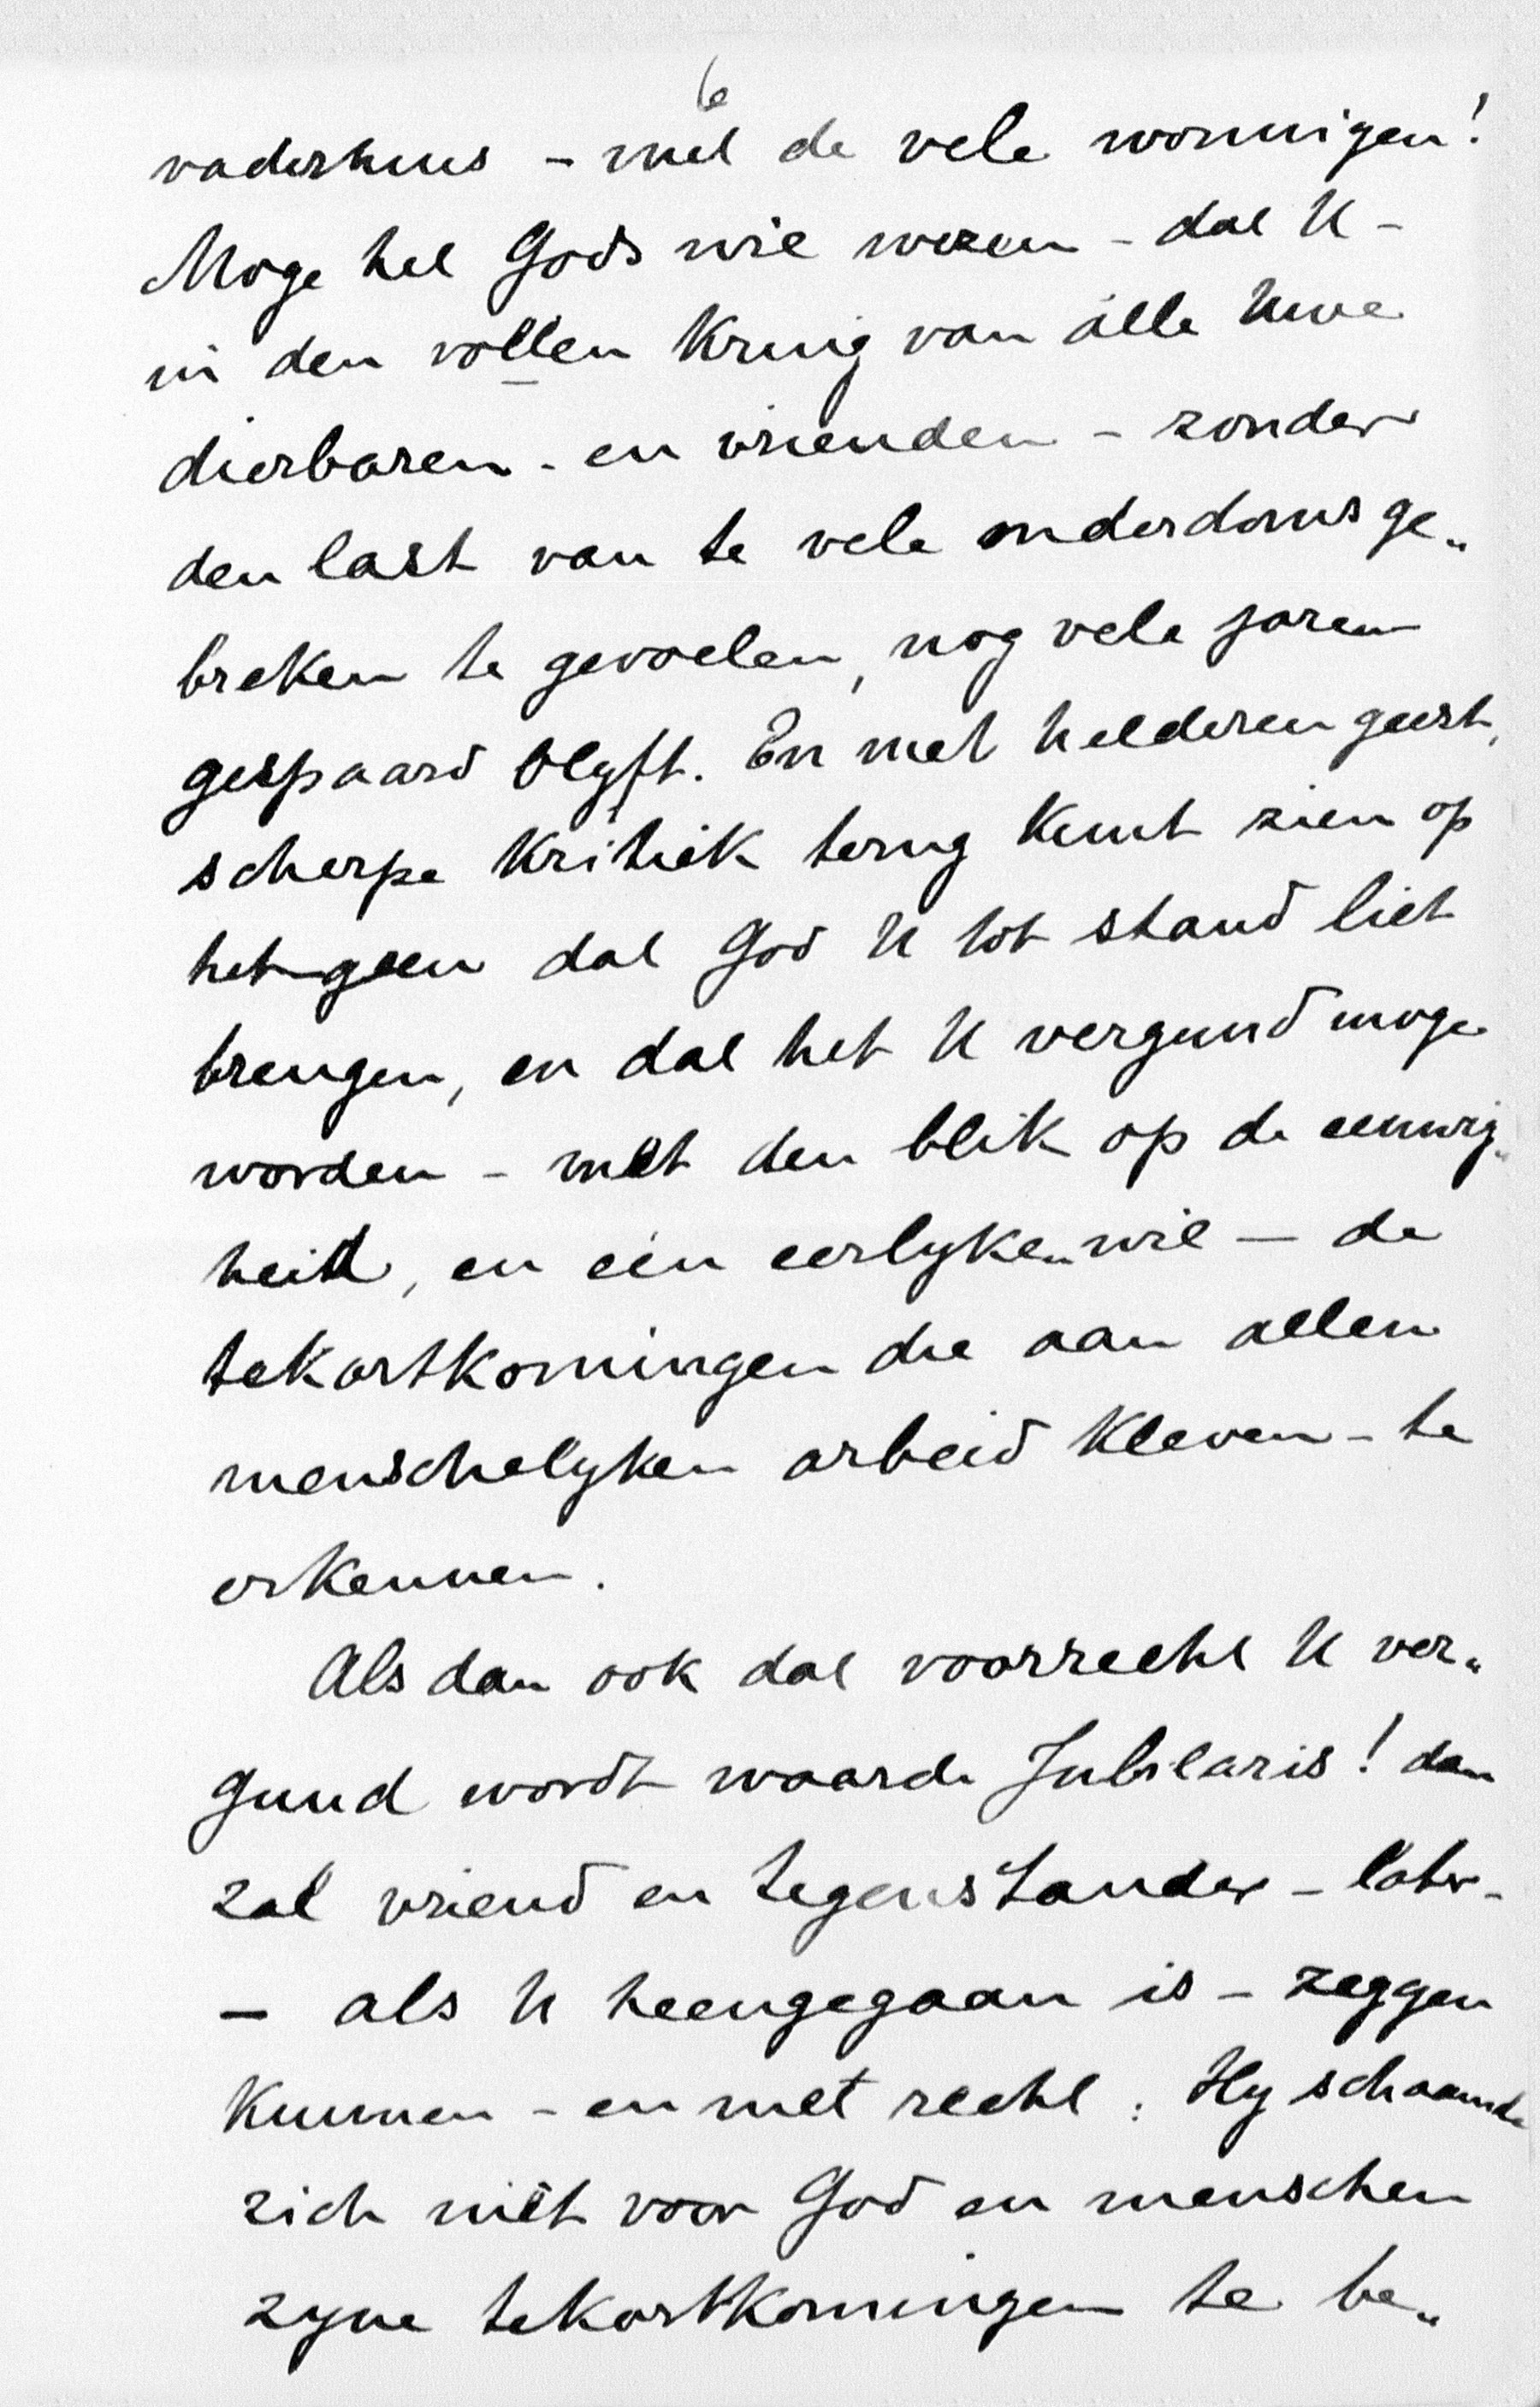 6
vaderhuis - met de vele woningen!
Moge het Gods wil wezen - dat U -
in den vollen Kring van álle Uwe
dierbaren - en vrienden - zonder
den last van te vele ouderdoms ge„
breken te gevoelen, nog vele jaren
gespaard blyft. En met helderen geest,
scherpe Kritiek terug Kunt zien op
hetgeen dat God U tot stand liet
brengen, en dat het U vergund moge
worden - met den blik op de eeuwig„
heid, en één eerlyken wil — de
tekortkomingen die aan allen
menschelyken arbeid Kleven - te
erkennen.
Als dan ook dat voorrecht U ver„
gund wordt waarde Jubilaris! dan
zal vriend en tegenstander - later -
- als U heengegaan is - zeggen
Kunnen - en met recht: Hy schaamde
zich niet voor God en menschen
zyne tekortkomingen te be„